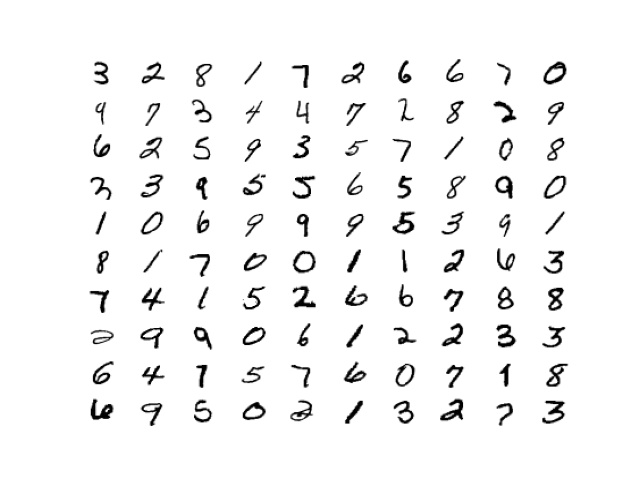 3 2 8 1 7 2 6 6 7 0
9 7 3 4 4 7 2 8 2 9
6 2 5 9 3 5 7 1 0 8
3 3 9 5 5 6 5 8 9 0
1 0 6 9 9 9 5 3 9 1
8 1 7 0 0 1 1 2 6 3
7 4 1 5 2 6 6 7 8 8
2 9 9 0 6 1 2 2 3 3
6 4 1 5 7 6 0 7 1 8
6 9 5 0 2 1 3 2 7 3